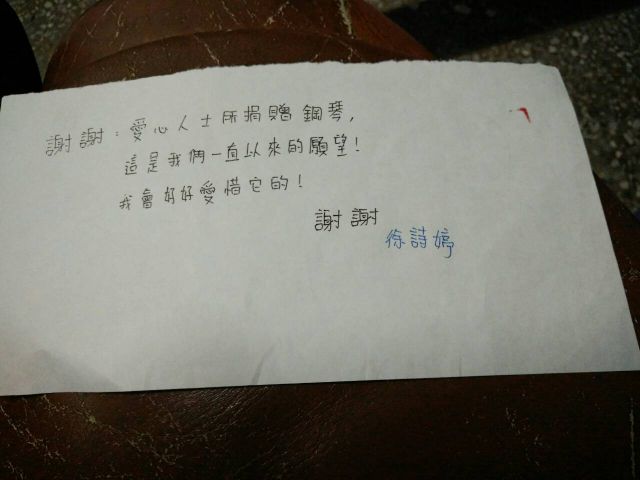 謝謝：愛心人士所捐贈鋼琴，
這是我們一直以來的願望！
我會好好愛惜它的！
謝謝
徐詩婷